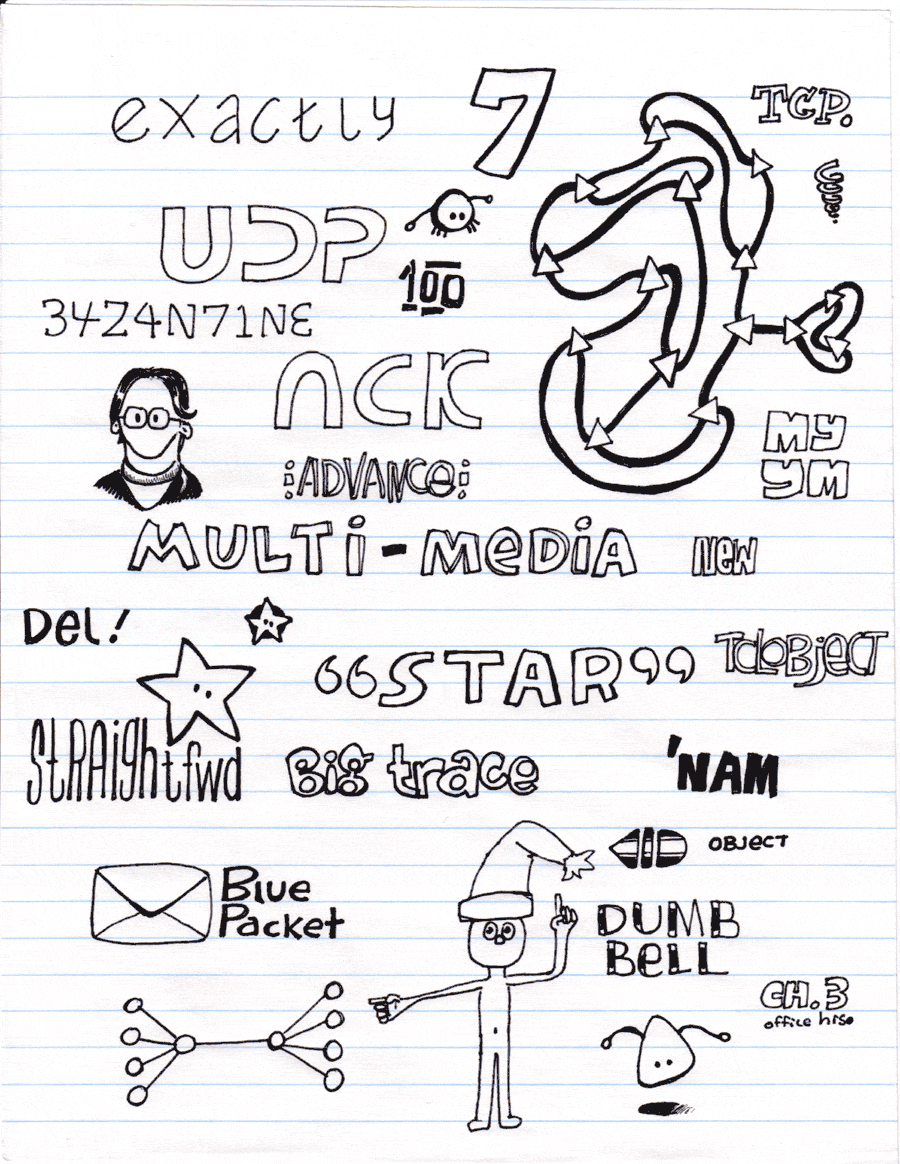 exactly
7
TCP.
UDP
100
34Z4N71NE
ACK
¡ADVANCE!
MY
YM
MULTi-MEDiA
NEW
DEL!
“STAR”
TclOBjECT
StRAightfwd
Big trace
'NAM
OBJECT
Blue
Packet
DUMB
BELL
CH. 3
office hrs